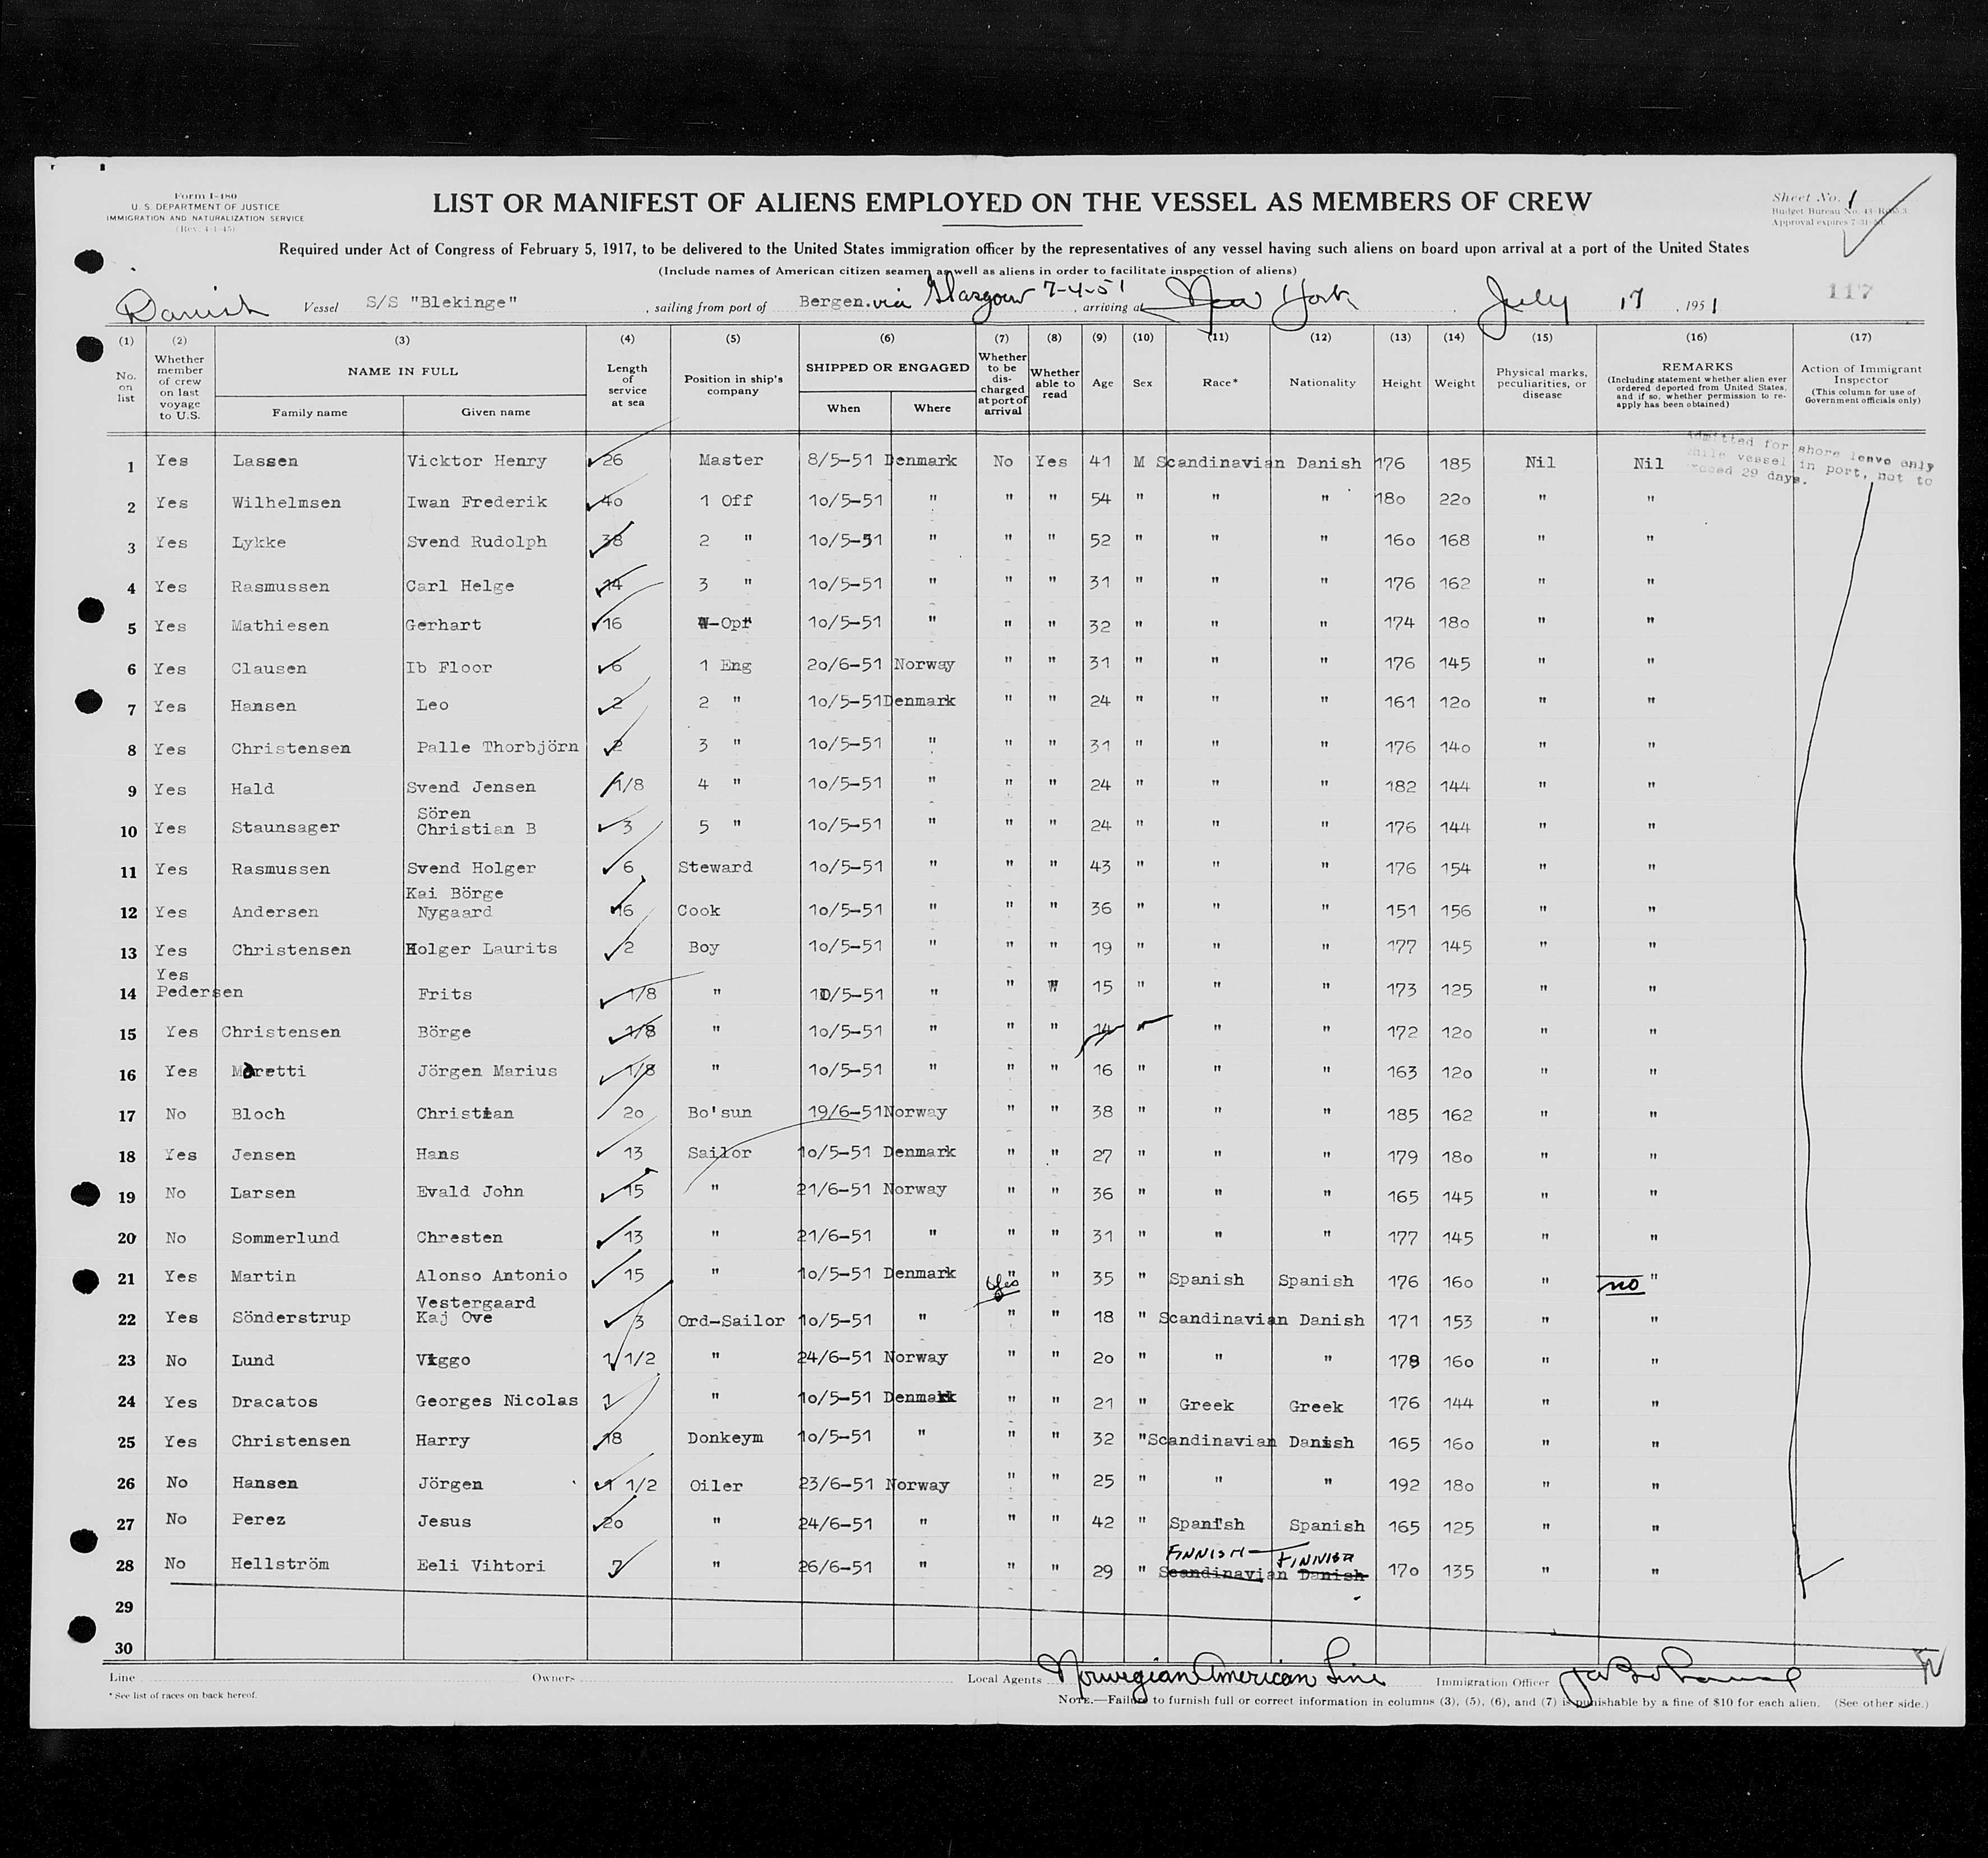 Form I-480
U. S. DEPARTMENT OF JUSTICE
IMMIGRATION AND NATURALIZATION SERVICE
(Rev. 4-1-45)
LIST OR MANIFEST OF ALIENS EMPLOYED ON THE VESSEL AS MEMBERS OF CREW
Sheet No. 1
Budget Bureau No. 43-
Approval expires 7-31-
Required under Act of Congress of February 5, 1917, to be delivered to the United States immigration officer by the representatives of any vessel having such aliens on board upon arrival at a port of the United States
(Include names of American citizen seamen as well as aliens in order to facilitate inspection of aliens)
Danish Vessel S/S "Blekinge" , sailing from port of Bergen. via Glasgow 7-4-51 , arriving at New York July 17 , 1951 117
(1) (2) (3) (4) (5) (6) (7) (8) (9) (10) (11) (12) (13) (14) (15) (16) (17)
No. on list Whether member of crew on last voyage to U.S. NAME IN FULL Family name Given name Length of service at sea Position in ship's company SHIPPED OR ENGAGED When Where Whether to be discharged at port of arrival Whether able to read Age Sex Race* Nationality Height Weight Physical marks, peculiarities, or disease REMARKS (Including statement whether alien ever ordered deported from United States, and if so, whether permission to reapply has been obtained) Action of Immigrant Inspector (This column for use of Government officials only)
Admitted for shore leave only
while vessel in port, not to
exceed 29 days.
1 Yes Lassen Vicktor Henry 26 Master 8/5-51 Denmark No Yes 41 M Scandinavian Danish 176 185 Nil Nil
2 Yes Wilhelmsen Iwan Frederik 4o 1 Off 1o/5-51 " " " 54 " " " 18o 22o " "
3 Yes Lykke Svend Rudolph 38 2 " 1o/5-51 " " " 52 " " " 16o 168 " "
4 Yes Rasmussen Carl Helge 14 3 " 1o/5-51 " " " 31 " " " 176 162 " "
5 Yes Mathiesen Gerhart 16 W-Opr 1o/5-51 " " " 32 " " " 174 18o " "
6 Yes Clausen Ib Floor 6 1 Eng 2o/6-51 Norway " " 31 " " " 176 145 " "
7 Yes Hansen Leo 2 2 " 1o/5-51 Denmark " " 24 " " " 161 12o " "
8 Yes Christensen Palle Thorbjörn 2 3 " 1o/5-51 " " " 31 " " " 176 14o " "
9 Yes Hald Svend Jensen 1/8 4 " 1o/5-51 " " " 24 " " " 182 144 " "
10 Yes Staunsager Sören Christian B 3 5 " 1o/5-51 " " " 24 " " " 176 144 " "
11 Yes Rasmussen Svend Holger 6 Steward 1o/5-51 " " " 43 " " " 176 154 " "
12 Yes Andersen Kai Börge Nygaard 16 Cook 1o/5-51 " " " 36 " " " 151 156 " "
13 Yes Christensen Holger Laurits 2 Boy 1o/5-51 " " " 19 " " " 177 145 " "
14 Yes Pedersen Frits 1/8 " 10/5-51 " " " 15 " " " 173 125 " "
15 Yes Christensen Börge 1/8 " 1o/5-51 " " " 14 " " 172 12o " "
16 Yes Moretti Jörgen Marius 1/8 " 1o/5-51 " " " 16 " " " 163 12o " "
17 No Bloch Christian 2o Bo'sun 19/6-51 Norway " " 38 " " " 185 162 " "
18 Yes Jensen Hans 13 Sailor 1o/5-51 Denmark " " 27 " " " 179 18o " "
19 No Larsen Evald John 15 " 21/6-51 Norway " " 36 " " " 165 145 " "
20 No Sommerlund Chresten 13 " 21/6-51 " " " 31 " " " 177 145 " "
21 Yes Martin Alonso Antonio 15 " 1o/5-51 Denmark " Yes " 35 " Spanish Spanish 176 16o " no "
22 Yes Sönderstrup Vestergaard Kaj Ove 3 Ord-Sailor 1o/5-51 " " " 18 " Scandinavian Danish 171 153 " "
23 No Lund Viggo 1 1/2 " 24/6-51 Norway " " 2o " " " 178 16o " "
24 Yes Dracatos Georges Nicolas 1 " 1o/5-51 Denmark " " 21 " Greek Greek 176 144 " "
25 Yes Christensen Harry 18 Donkeym 1o/5-51 " " " 32 " Scandinavian Danish 165 16o " "
26 No Hansen Jörgen 1 1/2 Oiler 23/6-51 Norway " " 25 " " " 192 18o " "
27 No Perez Jesus 2o " 24/6-51 " " " 42 " Spanish Spanish 165 125 " "
28 No Hellström Eeli Vihtori 7 " 26/6-51 " " " 29 " FINNISH Scandinavian FINNISH Danish 17o 135 " "
29
30
Line Owners Local Agents Norwegian American Line Immigration Officer
* See list of races on back hereof.
NOTE.—Failure to furnish full or correct information in columns (3), (5), (6), and (7) is punishable by a fine of $10 for each alien. (See other side.)